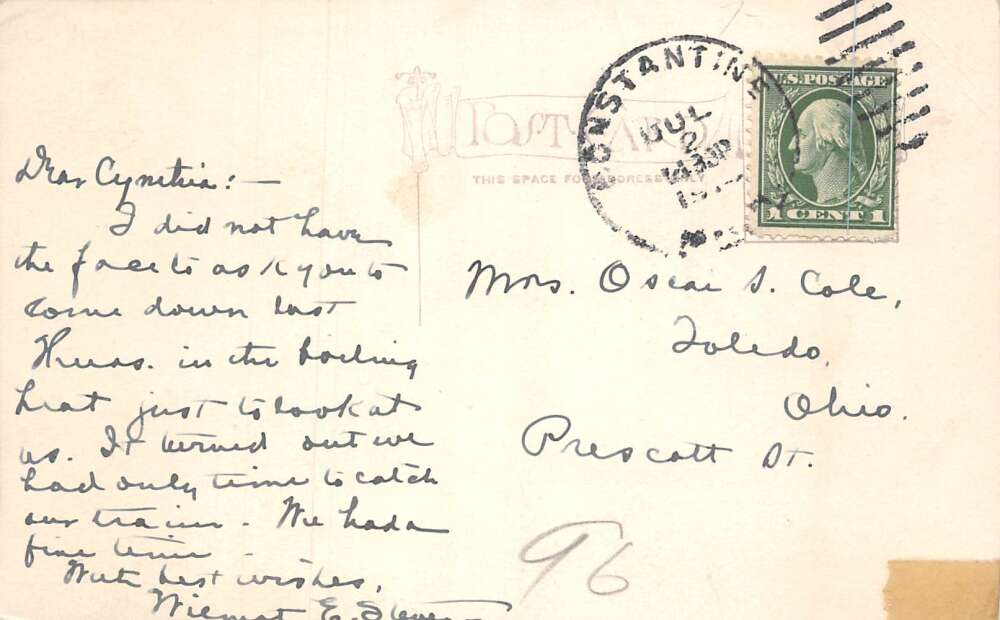 Dear Cynthia:—
I did not have
the face to ask you to
come down last
Thurs. in the boiling
heat just to look at
us. It turned out we
had only time to catch
our train. We had a
fine time
With best wishes,
Wilmot E. Steven
POST CARD
THIS SPACE FOR ADDRESS
CONSTANTINE
JUL
2
U.S. POSTAGE
1 CENT 1
Mrs. Oscar S. Cole,
Toledo,
Ohio.
Prescott St.
96